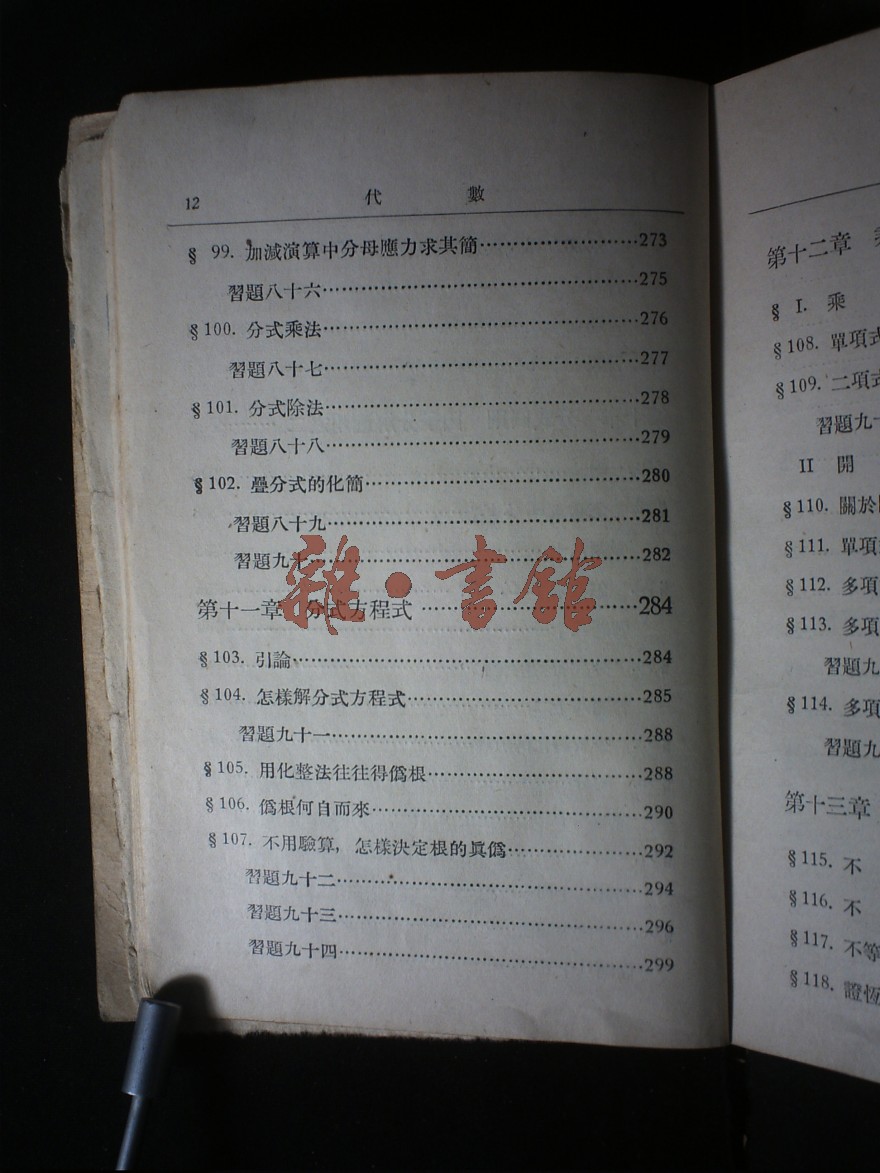 12 代 數
§ 99. 加減演算中分母應力求其簡……………………273
習題八十六……………………275
§100. 分式乘法……………………276
習題八十七……………………277
§101. 分式除法……………………278
習題八十八……………………279
§102. 疊分式的化簡……………………280
習題八十九……………………281
習題九十……………………282
第十一章 分式方程式……………………284
§103. 引論……………………284
§104. 怎樣解分式方程式……………………285
習題九十一……………………288
§105. 用化整法往往得僞根……………………288
§106. 僞根何自而來……………………290
§107. 不用驗算，怎樣決定根的眞僞……………………292
習題九十二……………………294
習題九十三……………………296
習題九十四……………………299
雜·書館
第十二章
§ I. 乘
§108. 單項式
§109. 二項式
習題九十
II 開
§110. 關於
§111. 單項
§112. 多項
§113. 多項
習題九
§114. 多項
習題九
第十三章
§115. 不
§116. 不
§117. 不等
§118. 證恆